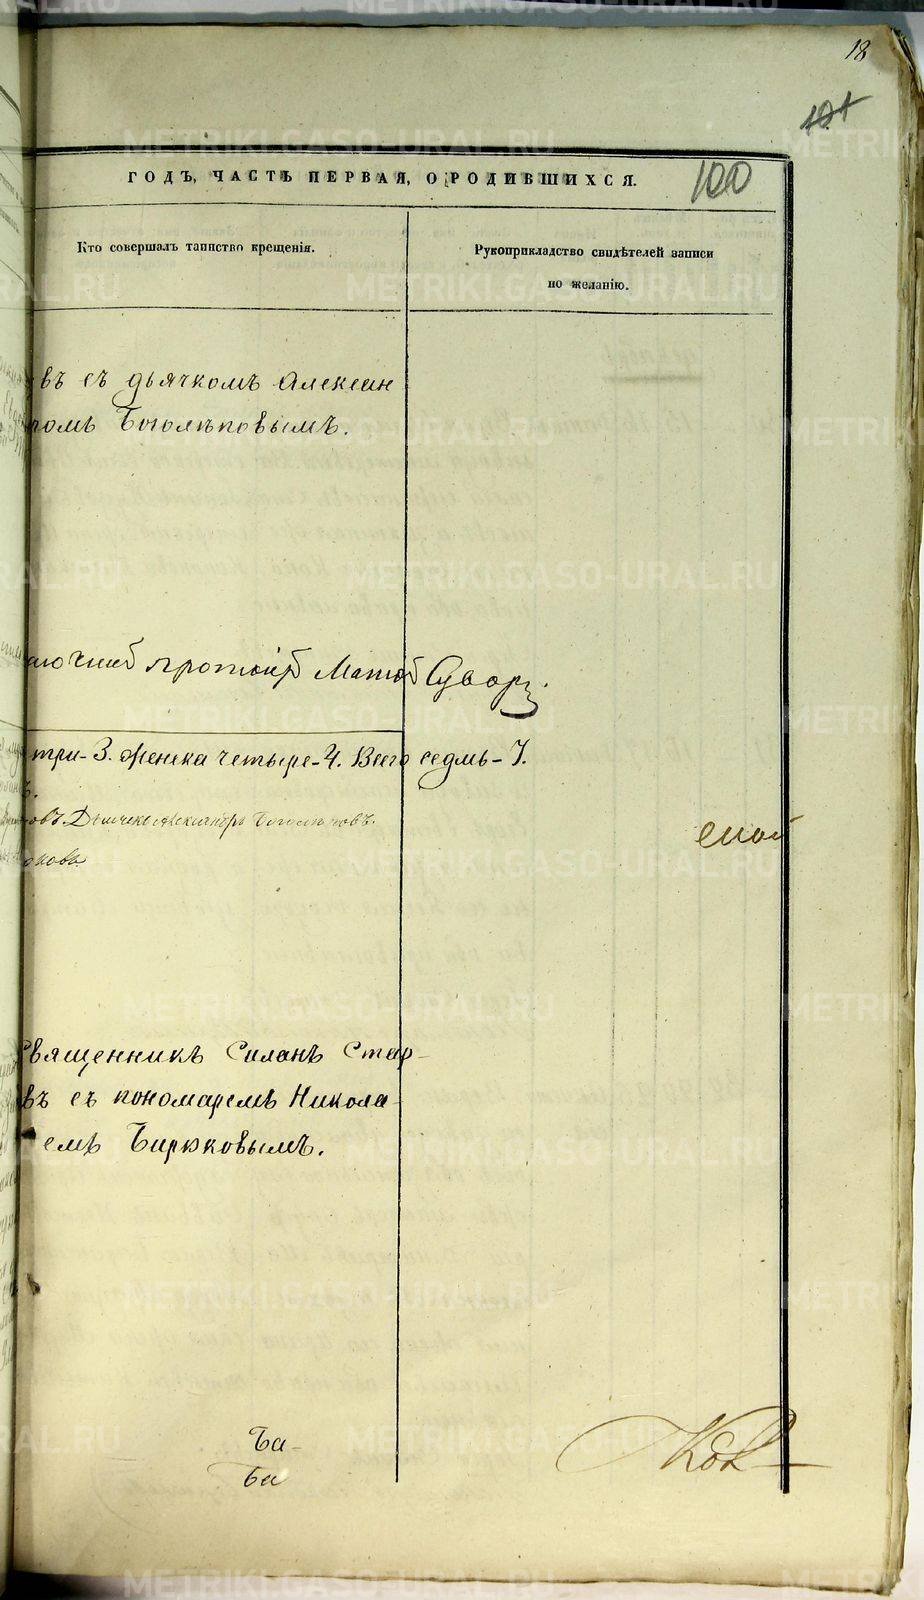 18
101
100
ГОДЪ, ЧАСТЬ ПЕРВАЯ, О РОДИВШИХСЯ.
Кто совершалъ таинство крещенія.
Рукоприкладство свидѣтелей записи
по желанію.
въ съ дьячкомъ Алексан
ромъ Боголѣповымъ.
протоіер
три-3. женска четыре-4. Всего седмь-7.
овъ. Дьячекъ Александръ Боголѣповъ.
ковъ
еной
Священникъ Силанъ Стар-
въ съ пономаремъ Никола-
емъ Бирюковымъ.
Ба-
Ба
METRIKI.GASO-URAL.RU